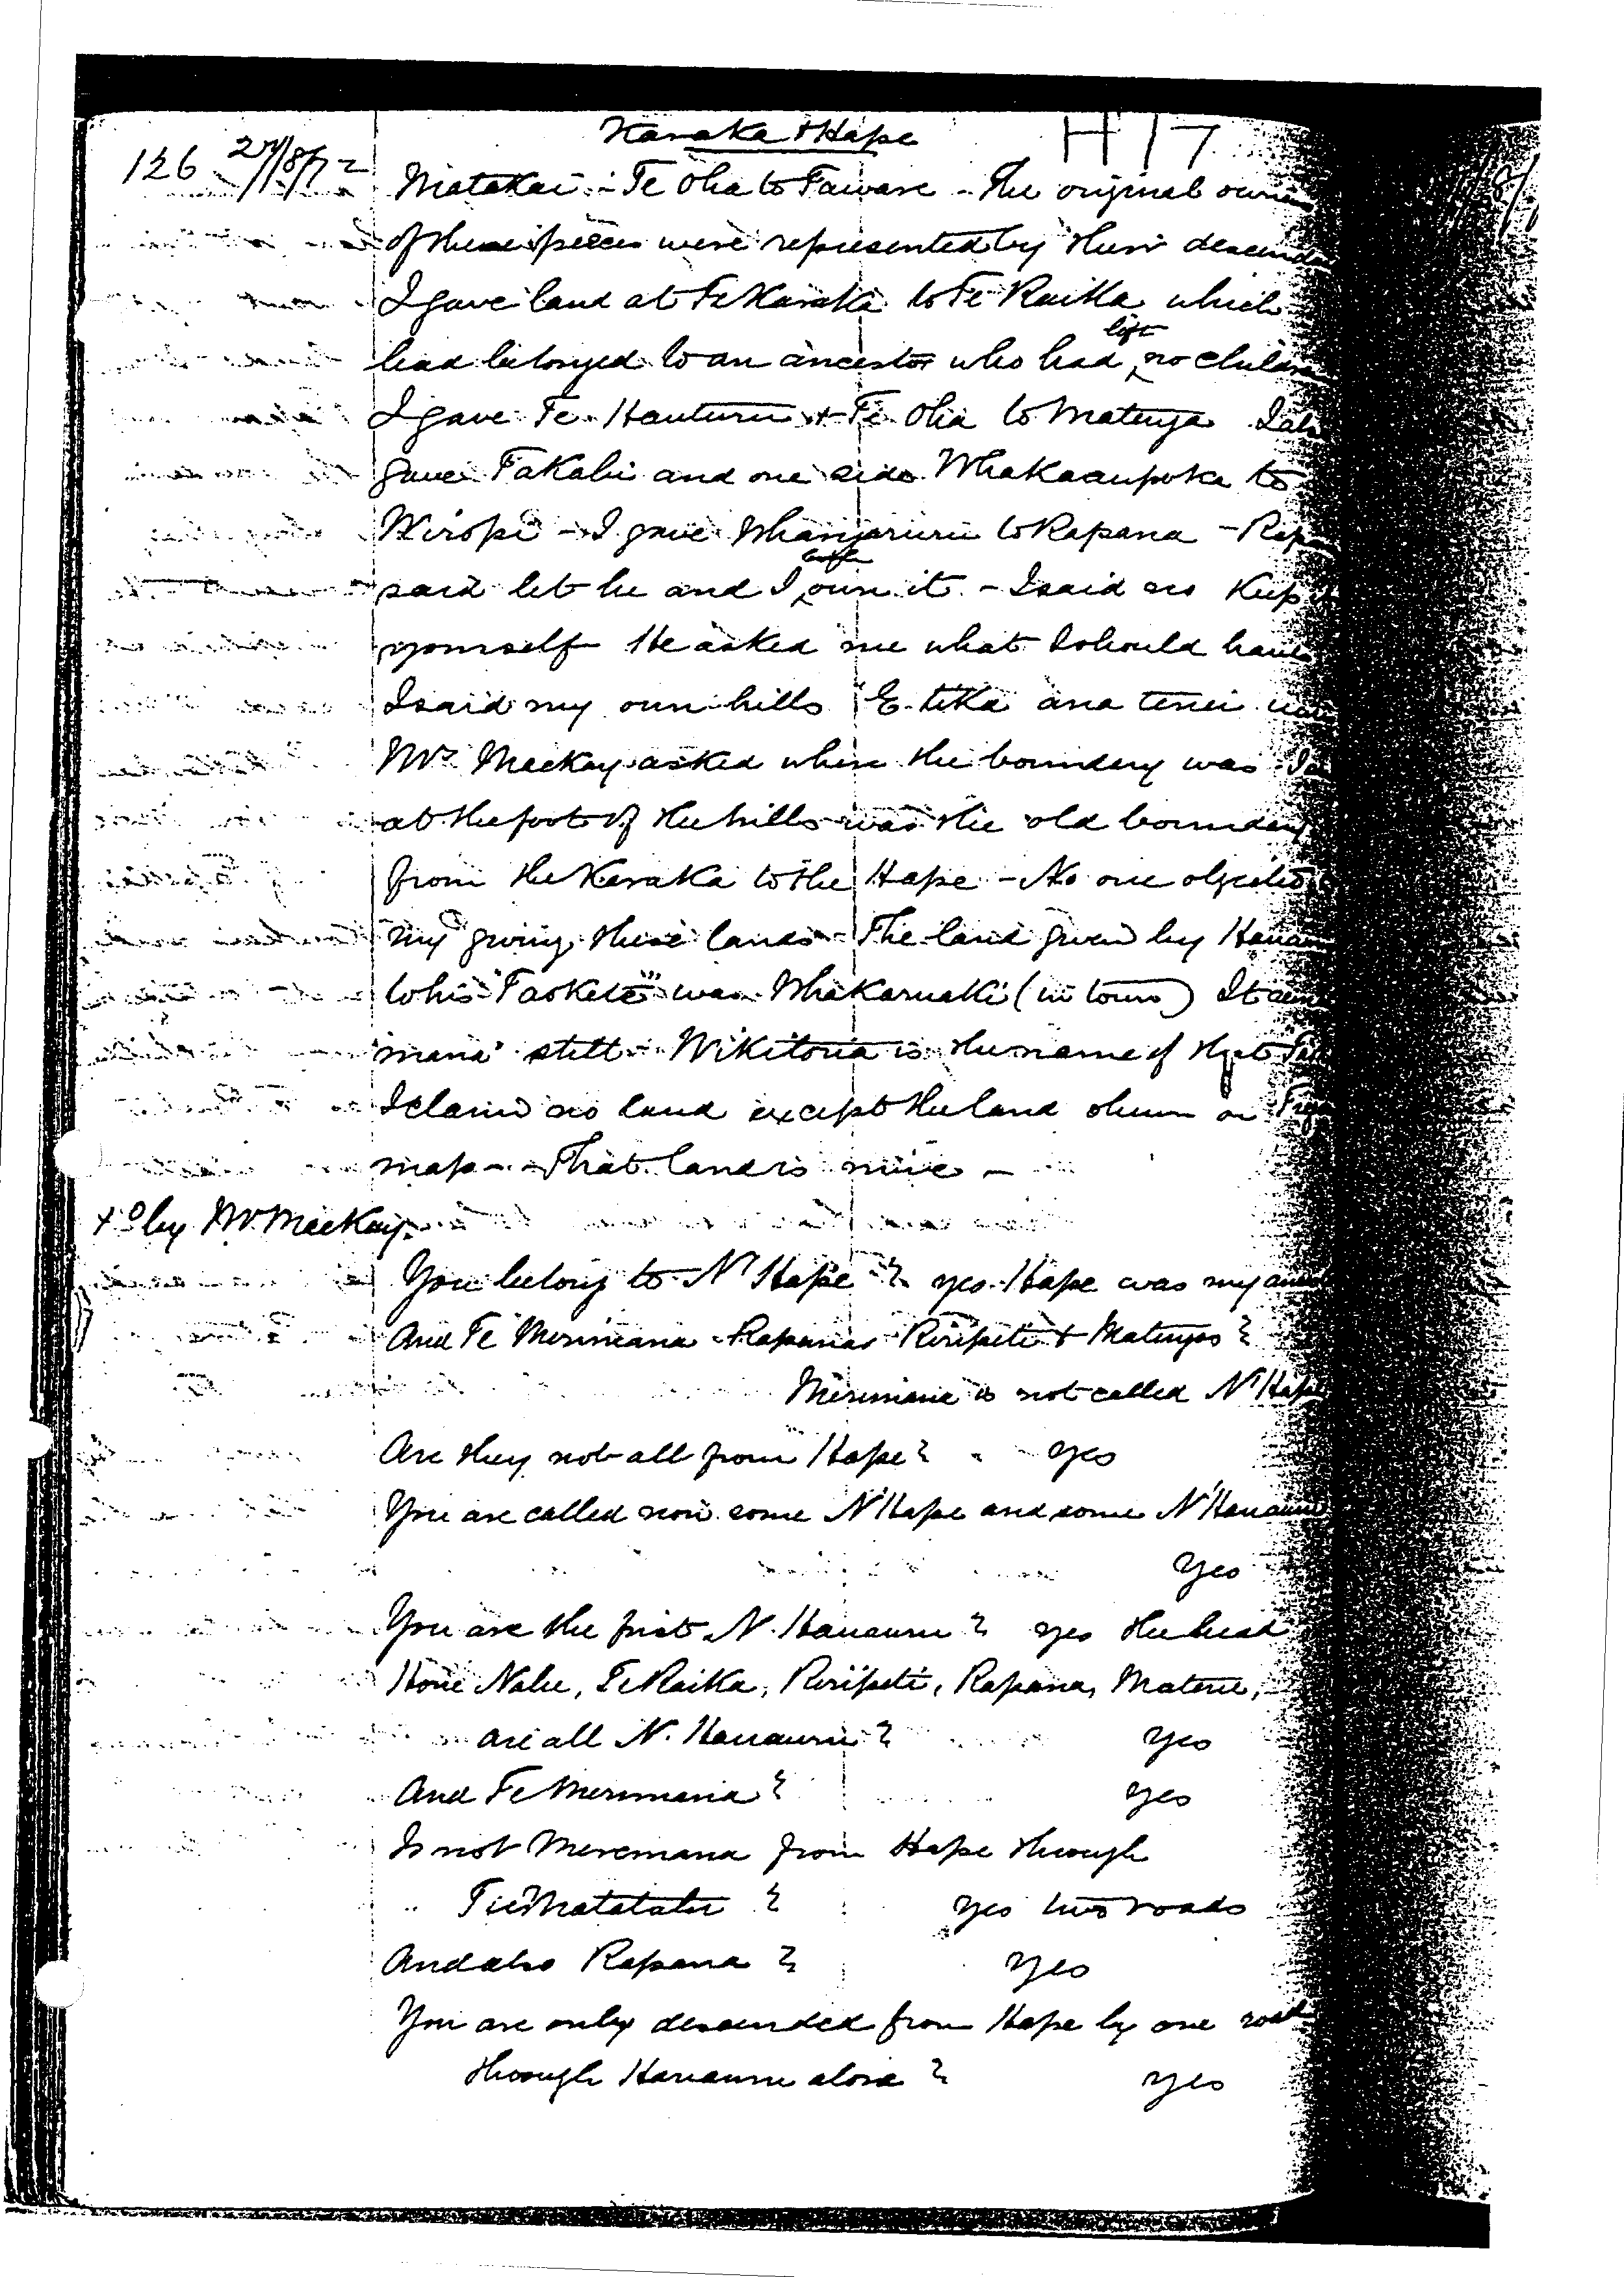 Karaka & Hape H17
126 27/8/72
Matakai - Te Oha to Taiware - The original owners
of these pieces were represented by their descenda
I gave land at Te Karaka to Te Raika which
had belonged to an ancestor who had left no children
I gave Te Hauturu & Te Oha to Matenga I also
gave Takahi and one side Whakaaupoke to
Wiropi - I gave Whangaruru to Rapana - Rapa
said let he and I both own it - I said no Keep
yourself He asked me what I should have
I said my own hills "E tika ana tenei
Mr Mackay asked where the boundary was I
at the foot of the hills was the old boundary
from the Karaka to the Hape - No one objected
my giving these lands - The land given by Hanau
to his "Taokete" was Whakaruaki (in town) It
mana still - Wikitoria is the name of that
I claim no land except the land shewn on
map - That land is mine -
x d by Mr Mackay.
You belong to N' Hape? yes. Hape was my
And Te Meremana Rapanas Riripeti & Matengas?
Meremana is not called N' Hape
Are they not all from Hape? - yes
You are called now some N' Hape and some N' Hanauru
yes
You are the first N. Hanauru? yes the head
Hone Nahe, Te Raika, Riripeti, Rapana, Matene,
are all N. Hanauru? yes
And Te Meremana? yes
Is not Meremana from Hape through
Tumatatahi? yes two roads
And also Rapana? yes
You are only descended from Hape by one road
through Hanauru alone? yes